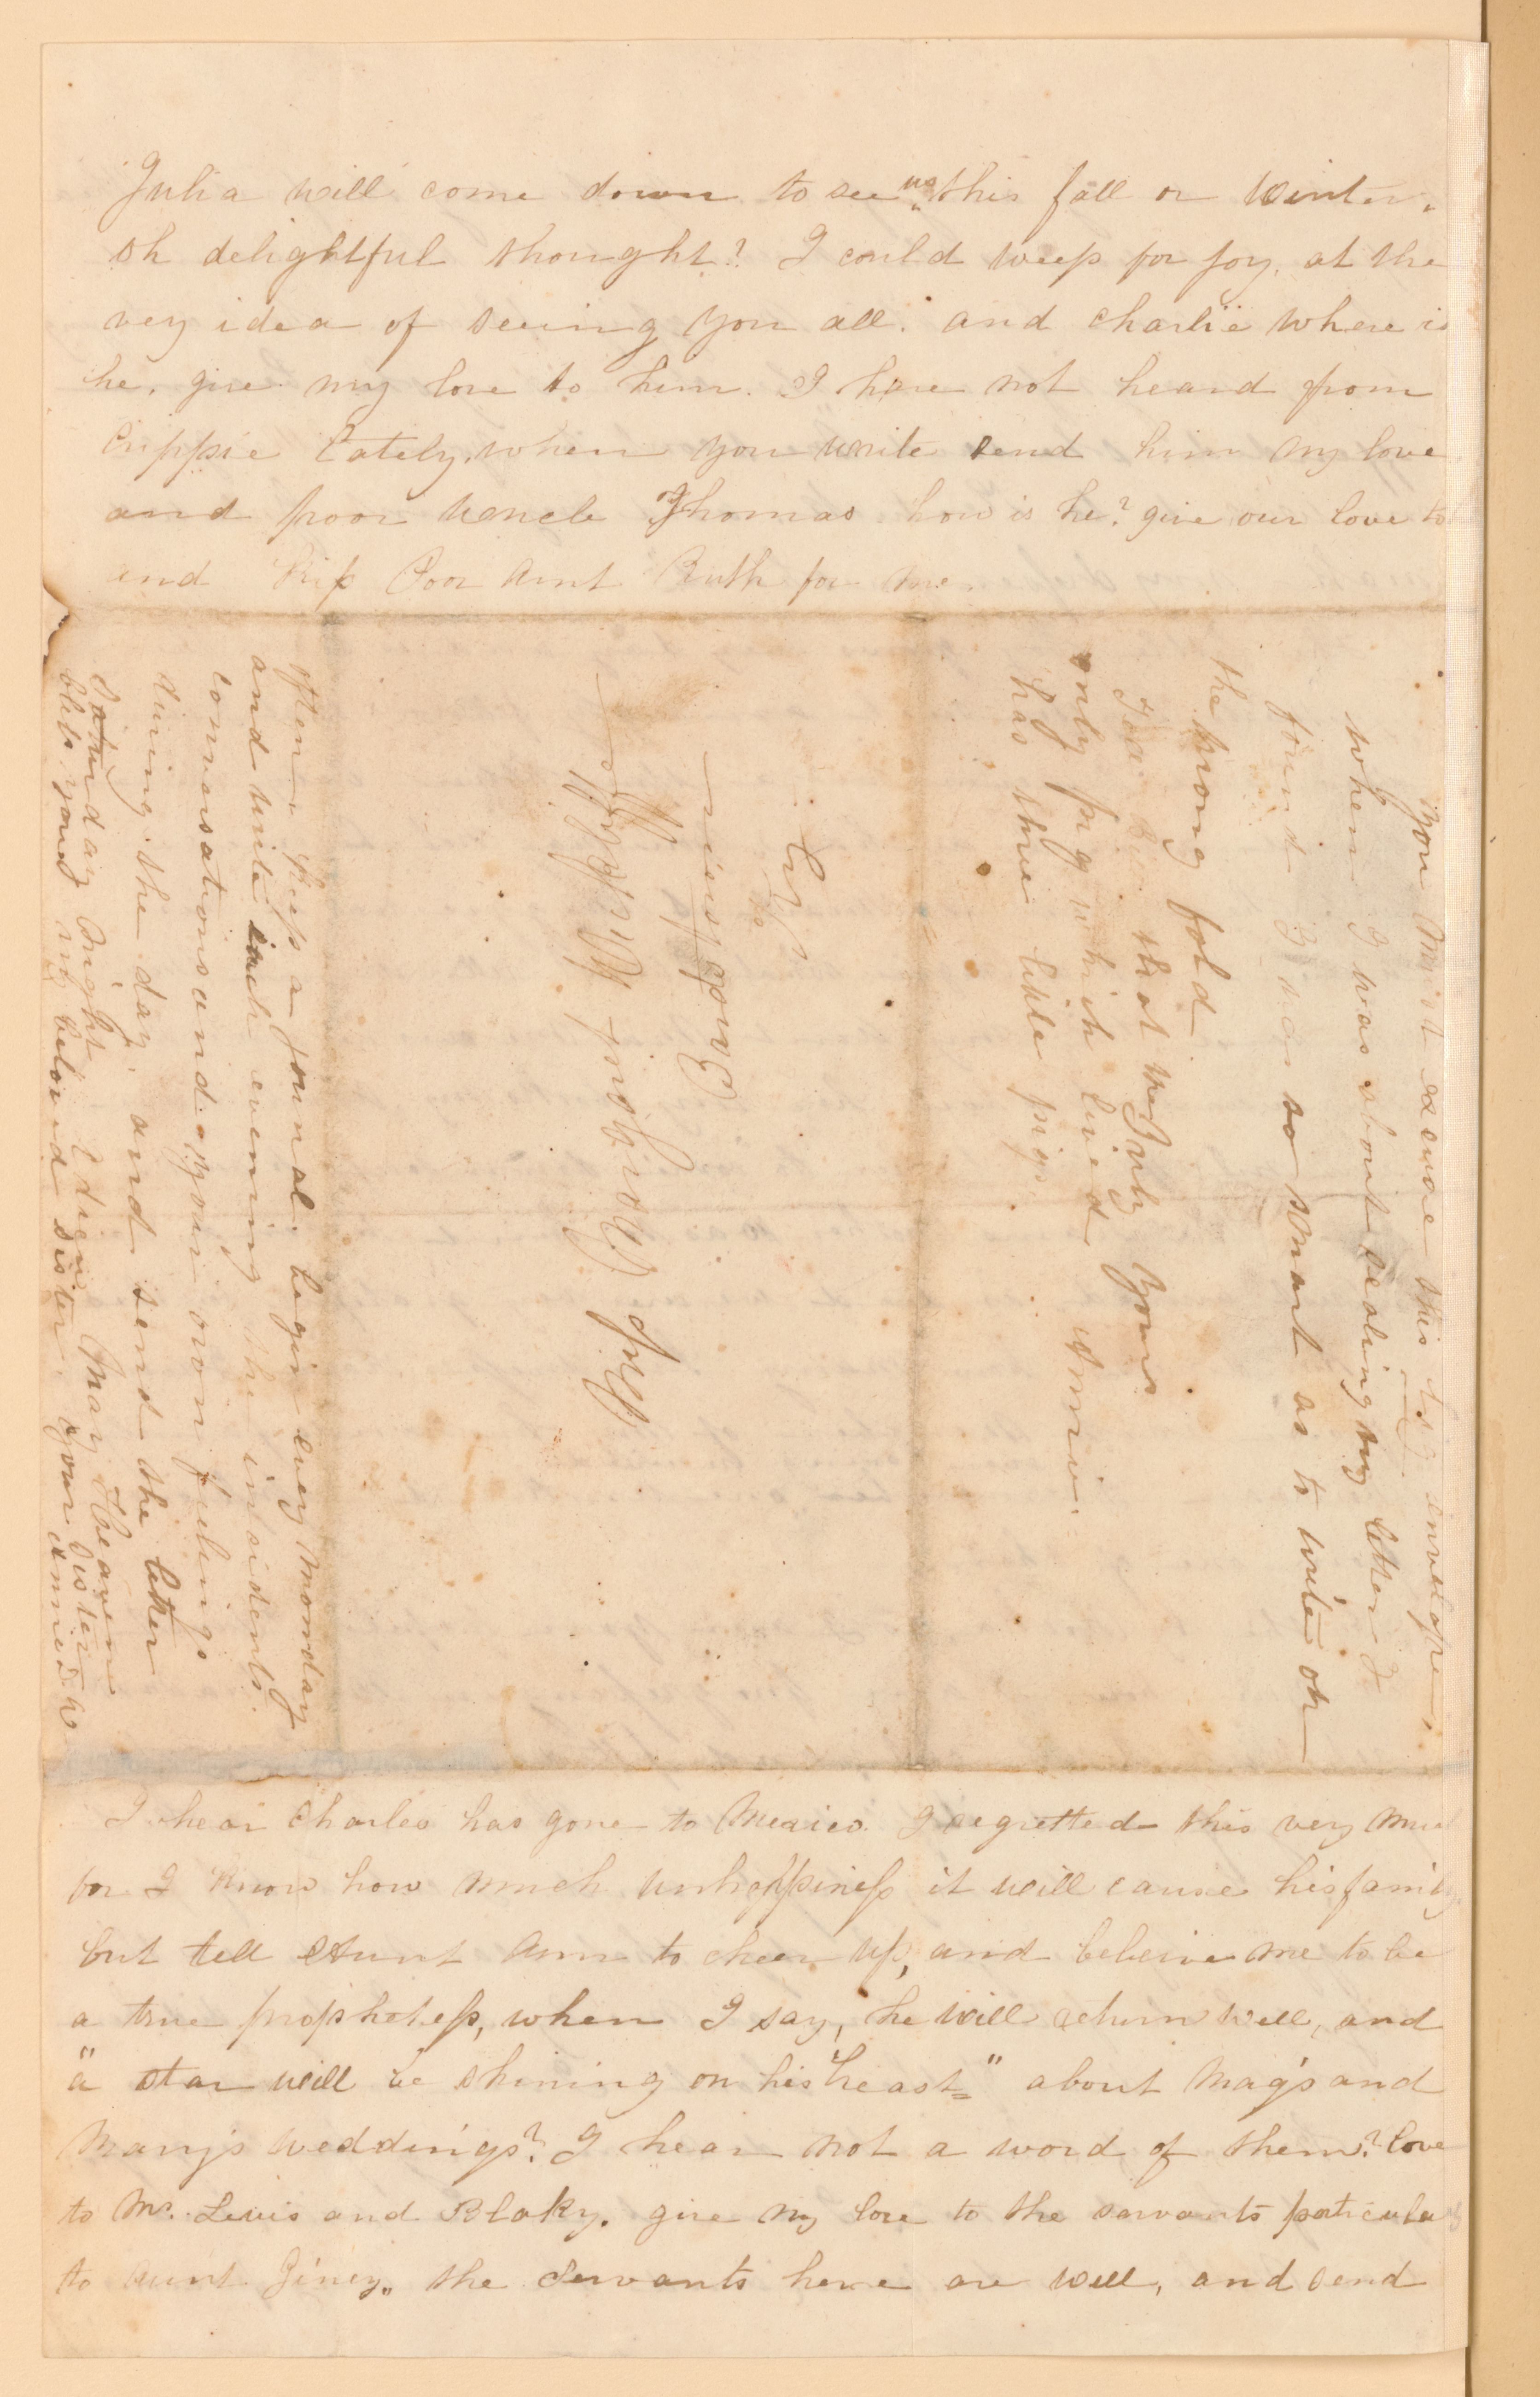 Julia will come down to see us this fall or winter.
oh delightful thought? I could weep for joy, at the
very idea of seeing you all. and Charlie where is
he, give my love to him. I have not heard from
Crippsie lately, when you write send him my love
and poor Uncle Thomas how is he? give our love to
and Kiss Poor Aunt Ruth for me.
You must excuse this ugly envelope,
when I was about sealing my letter I
found I was so smart as to write on
the wrong fold
that the July
only pig which lived
has three little pigs.
Yours Annie.
Mrs
Present
often keep a journal. begin every monday
and write each evening the insidents.
conversations and your own feelings
during the day, and send the letter
Saturday night Heaven
bless you my beloved sister. Your sister
Annie
I hear Charles has gone to Mexico. I regretted this very much
for I know how much unhappiness it will cause his family
but tell Aunt Ann to cheer up, and beleive me to be
a true prophetess, when I say, he will return well, and
"a star will be shining on his breast" about Mag's and
Mary's weddings? I hear not a word of them? love
to Mr. Lewis and Blaky. give my love to the servants particularly
to Aunt Giney. the Servants here are well, and send